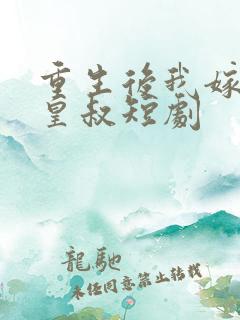 重生後我嫁
皇叔短劇
龍馳
未任同意禁止轉載